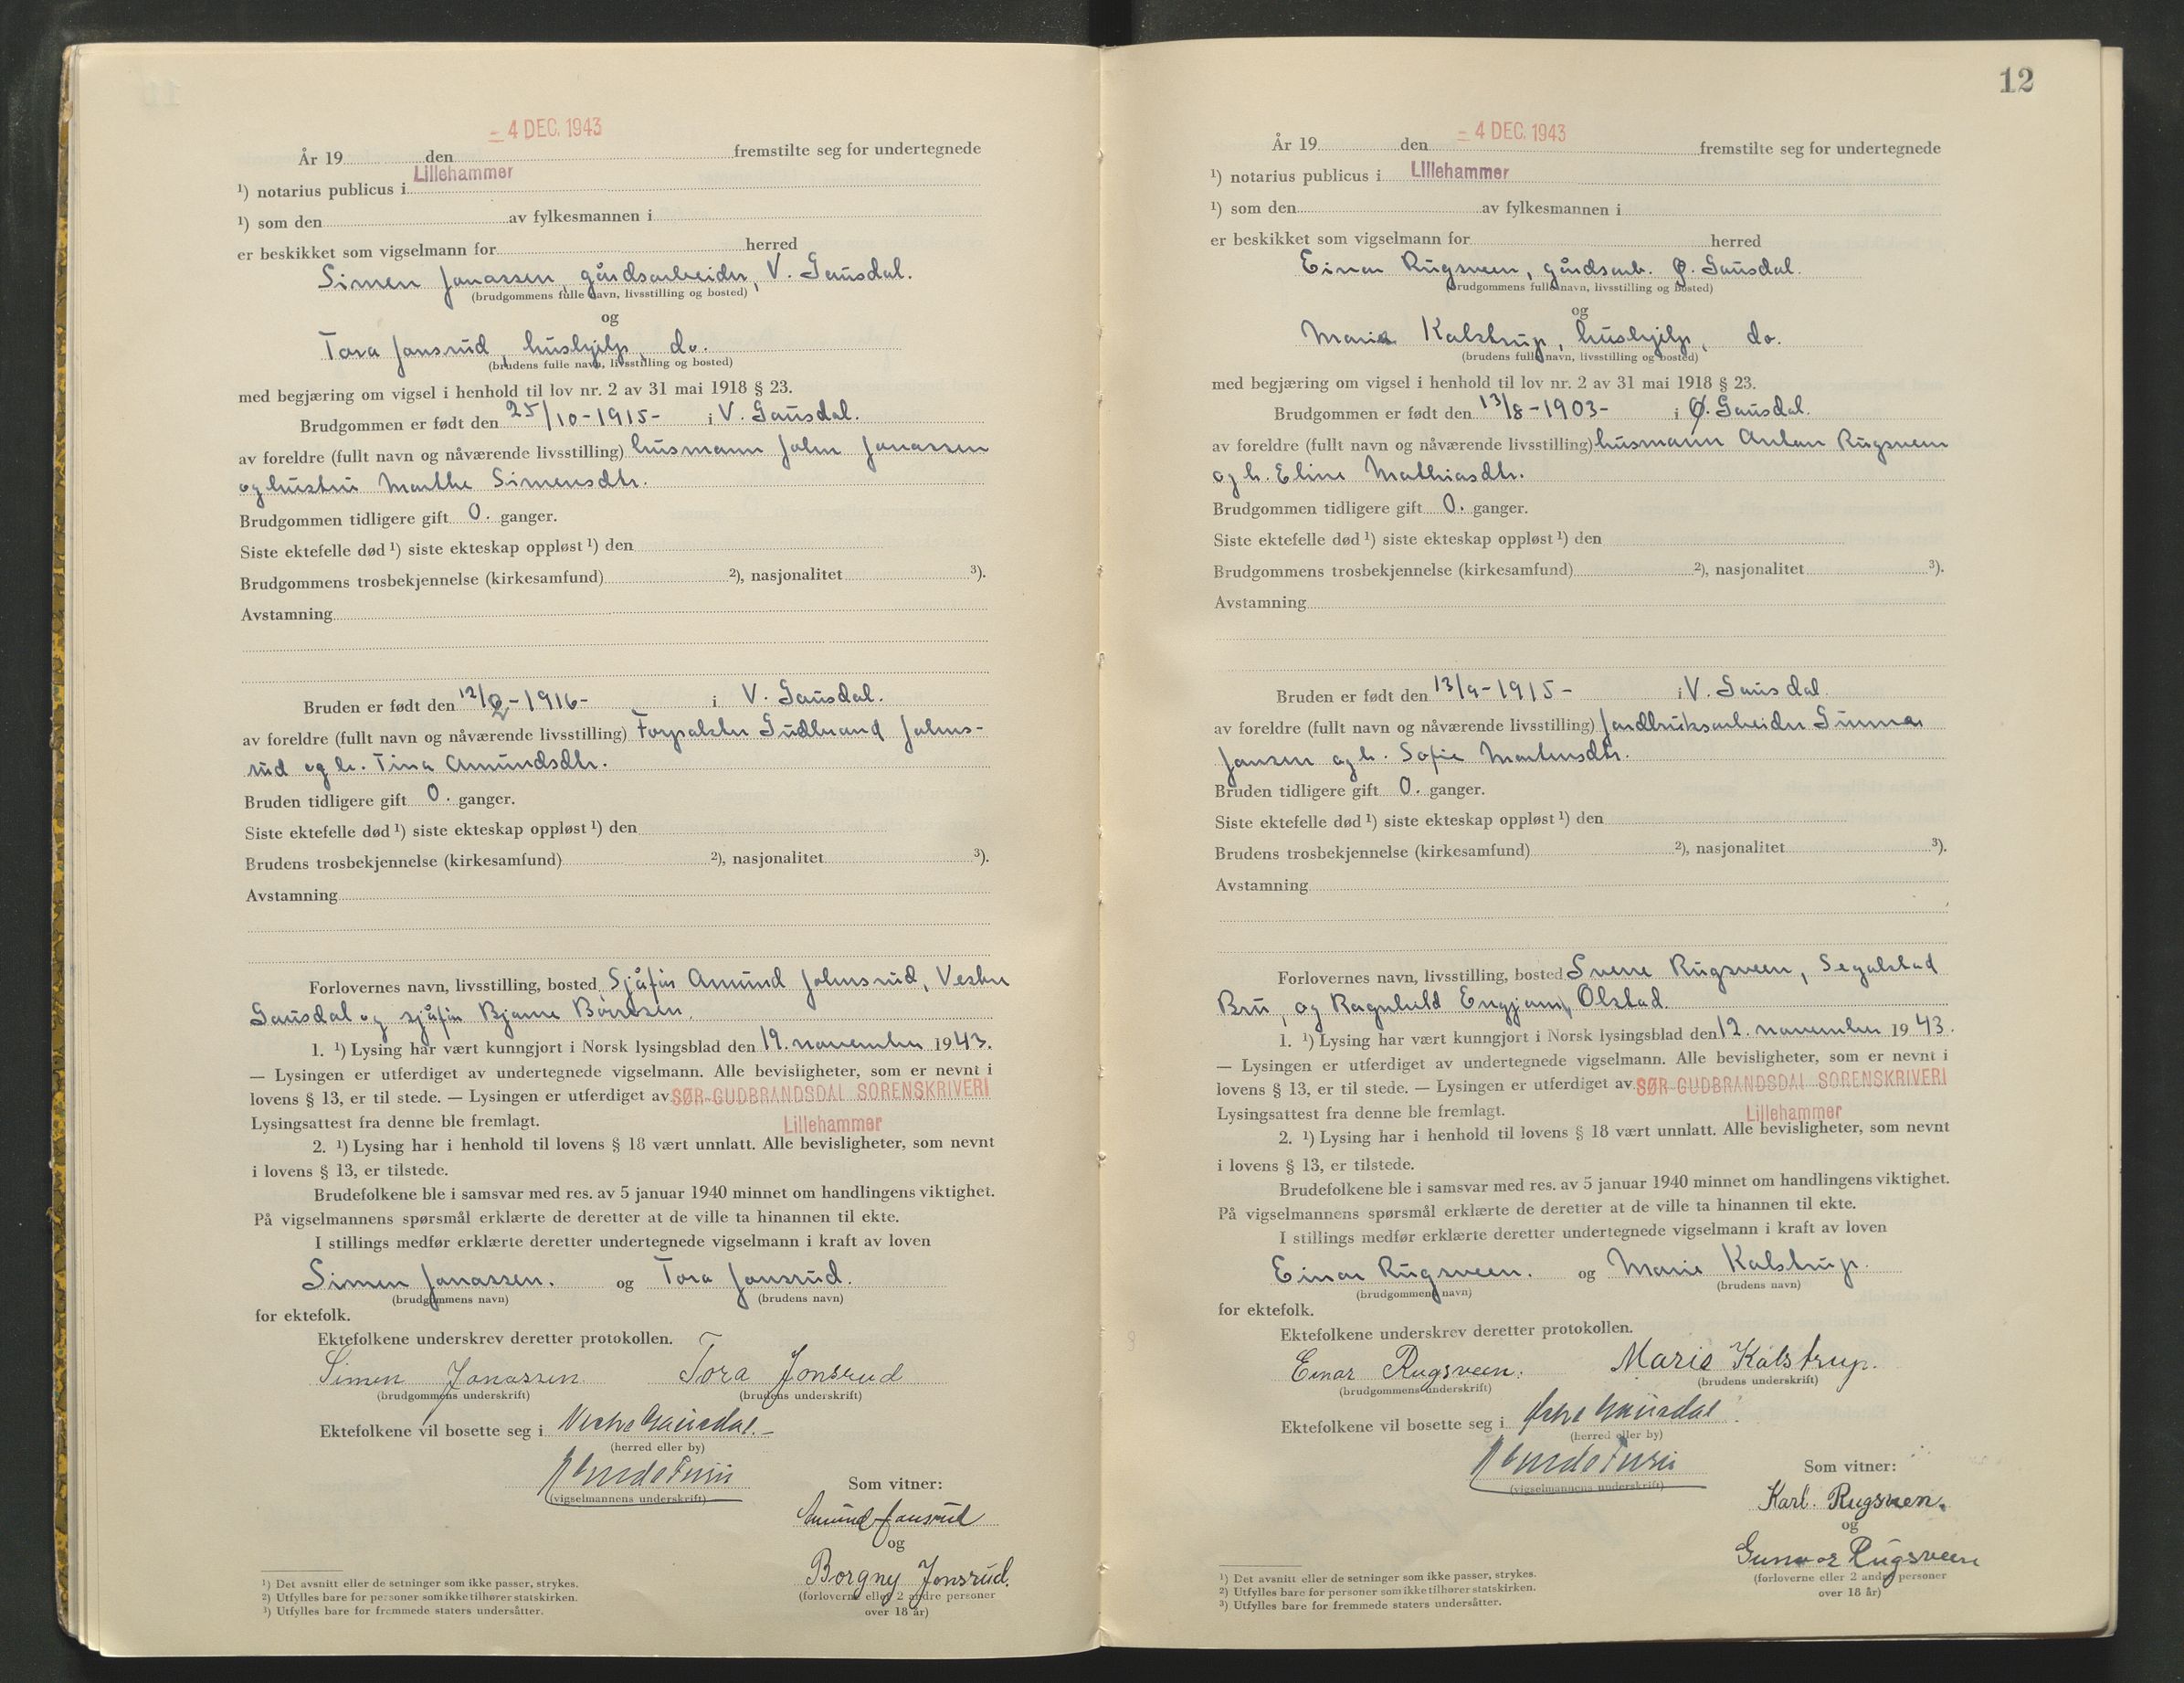 - 4 DEC. 1943
År 19 den fremstilte seg for undertegnede
Lillehammer
¹) notarius publicus i
¹) som den av fylkesmannen i
er beskikket som vigselmann for herred
Simen Jonassen, gårdsarbeider, V. Gausdal.
(brudgommens fulle navn, livsstilling og bosted)
og
Tora Jonsrud, hushjelp, do.
(brudens fulle navn, livsstilling og bosted)
med begjæring om vigsel i henhold til lov nr. 2 av 31 mai 1918 § 23.
Brudgommen er født den 25/10-1915- i V. Gausdal.
av foreldre (fullt navn og nåværende livsstilling) husmann John Jonassen
og hustru Marthe Simensdtr.
Brudgommen tidligere gift 0. ganger.
Siste ektefelle død ¹) siste ekteskap oppløst ¹) den
Brudgommens trosbekjennelse (kirkesamfund) ²), nasjonalitet ³).
Avstamning
Bruden er født den 12/2-1916- i V. Gausdal.
av foreldre (fullt navn og nåværende livsstilling) Forpakter Gudbrand Johns-
rud og h. Tina Amundsdtr.
Bruden tidligere gift 0. ganger.
Siste ektefelle død ¹) siste ekteskap oppløst ¹) den
Brudens trosbekjennelse (kirkesamfund) ²), nasjonalitet ³).
Avstamning
Forlovernes navn, livsstilling, bosted Sjåfør Amund Johnsrud, Vestre
Gausdal og sjåfør Bjarne
1. ¹) Lysing har vært kunngjort i Norsk lysingsblad den 19. november 1943.
— Lysingen er utferdiget av undertegnede vigselmann. Alle bevisligheter, som er nevnt i
lovens § 13, er til stede. — Lysingen er utferdiget av SØR-GUDBRANDSDAL SORENSKRIVERI
Lysingsattest fra denne ble fremlagt. Lillehammer
2. ¹) Lysing har i henhold til lovens § 18 vært unnlatt. Alle bevisligheter, som nevnt
i lovens § 13, er tilstede.
Brudefolkene ble i samsvar med res. av 5 januar 1940 minnet om handlingens viktighet.
På vigselmannens spørsmål erklærte de deretter at de ville ta hinannen til ekte.
I stillings medfør erklærte deretter undertegnede vigselmann i kraft av loven
Simen Jonassen. og Tora Jonsrud.
(brudgommens navn) (brudens navn)
for ektefolk.
Ektefolkene underskrev deretter protokollen.
Simen Jonassen Tora Jonsrud
(brudgommens underskrift) (brudens underskrift)
Ektefolkene vil bosette seg i Vestre Gausdal.
(herred eller by)
(vigselmannens underskrift)
Som vitner:
Amund Jonsrud
og
Borgny Jonsrud.
(forloverne eller 2 andre personer
over 18 år)
¹) Det avsnitt eller de setninger som ikke passer, strykes.
²) Utfylles bare for personer som ikke tilhører statskirken.
³) Utfylles bare for fremmede staters undersåtter.
12
- 4 DEC. 1943
År 19 den fremstilte seg for undertegnede
¹) notarius publicus i Lillehammer
¹) som den av fylkesmannen i
er beskikket som vigselmann for herred
Einar Rugsveen, gårdsarb. Ø. Gausdal.
(brudgommens fulle navn, livsstilling og bosted)
og
Marie Kalstrup, hushjelp, do.
(brudens fulle navn, livsstilling og bosted)
med begjæring om vigsel i henhold til lov nr. 2 av 31 mai 1918 § 23.
Brudgommen er født den 13/8-1903- i Ø. Gausdal.
av foreldre (fullt navn og nåværende livsstilling) husmann Anton Rugsveen
og h. Eline Mathiasdtr.
Brudgommen tidligere gift 0. ganger.
Siste ektefelle død ¹) siste ekteskap oppløst ¹) den
Brudgommens trosbekjennelse (kirkesamfund) ²), nasjonalitet ³).
Avstamning
Bruden er født den 13/9-1915- i V. Gausdal.
av foreldre (fullt navn og nåværende livsstilling) Jordbruksarbeider Gunnar
Jansen og h. Sofie Martinsdtr.
Bruden tidligere gift 0. ganger.
Siste ektefelle død ¹) siste ekteskap oppløst ¹) den
Brudens trosbekjennelse (kirkesamfund) ²), nasjonalitet ³).
Avstamning
Forlovernes navn, livsstilling, bosted Sverre Rugsveen, Segalstad
Bru, og Ragnhild Engjom, Olstad.
1. ¹) Lysing har vært kunngjort i Norsk lysingsblad den 12. november 1943.
— Lysingen er utferdiget av undertegnede vigselmann. Alle bevisligheter, som er nevnt i
lovens § 13, er til stede. — Lysingen er utferdiget av SØR-GUDBRANDSDAL SORENSKRIVERI
Lysingsattest fra denne ble fremlagt. Lillehammer
2. ¹) Lysing har i henhold til lovens § 18 vært unnlatt. Alle bevisligheter, som nevnt
i lovens § 13, er tilstede.
Brudefolkene ble i samsvar med res. av 5 januar 1940 minnet om handlingens viktighet.
På vigselmannens spørsmål erklærte de deretter at de ville ta hinannen til ekte.
I stillings medfør erklærte deretter undertegnede vigselmann i kraft av loven
Einar Rugsveen. og Marie Kalstrup.
(brudgommens navn) (brudens navn)
for ektefolk.
Ektefolkene underskrev deretter protokollen.
Einar Rugsveen. Marie Kalstrup.
(brudgommens underskrift) (brudens underskrift)
Ektefolkene vil bosette seg i Østre Gausdal.
(herred eller by)
(vigselmannens underskrift)
Som vitner:
Karl. Rugsveen.
og
Gunvor Rugsveen
(forloverne eller 2 andre personer
over 18 år)
¹) Det avsnitt eller de setninger som ikke passer, strykes.
²) Utfylles bare for personer som ikke tilhører statskirken.
³) Utfylles bare for fremmede staters undersåtter.